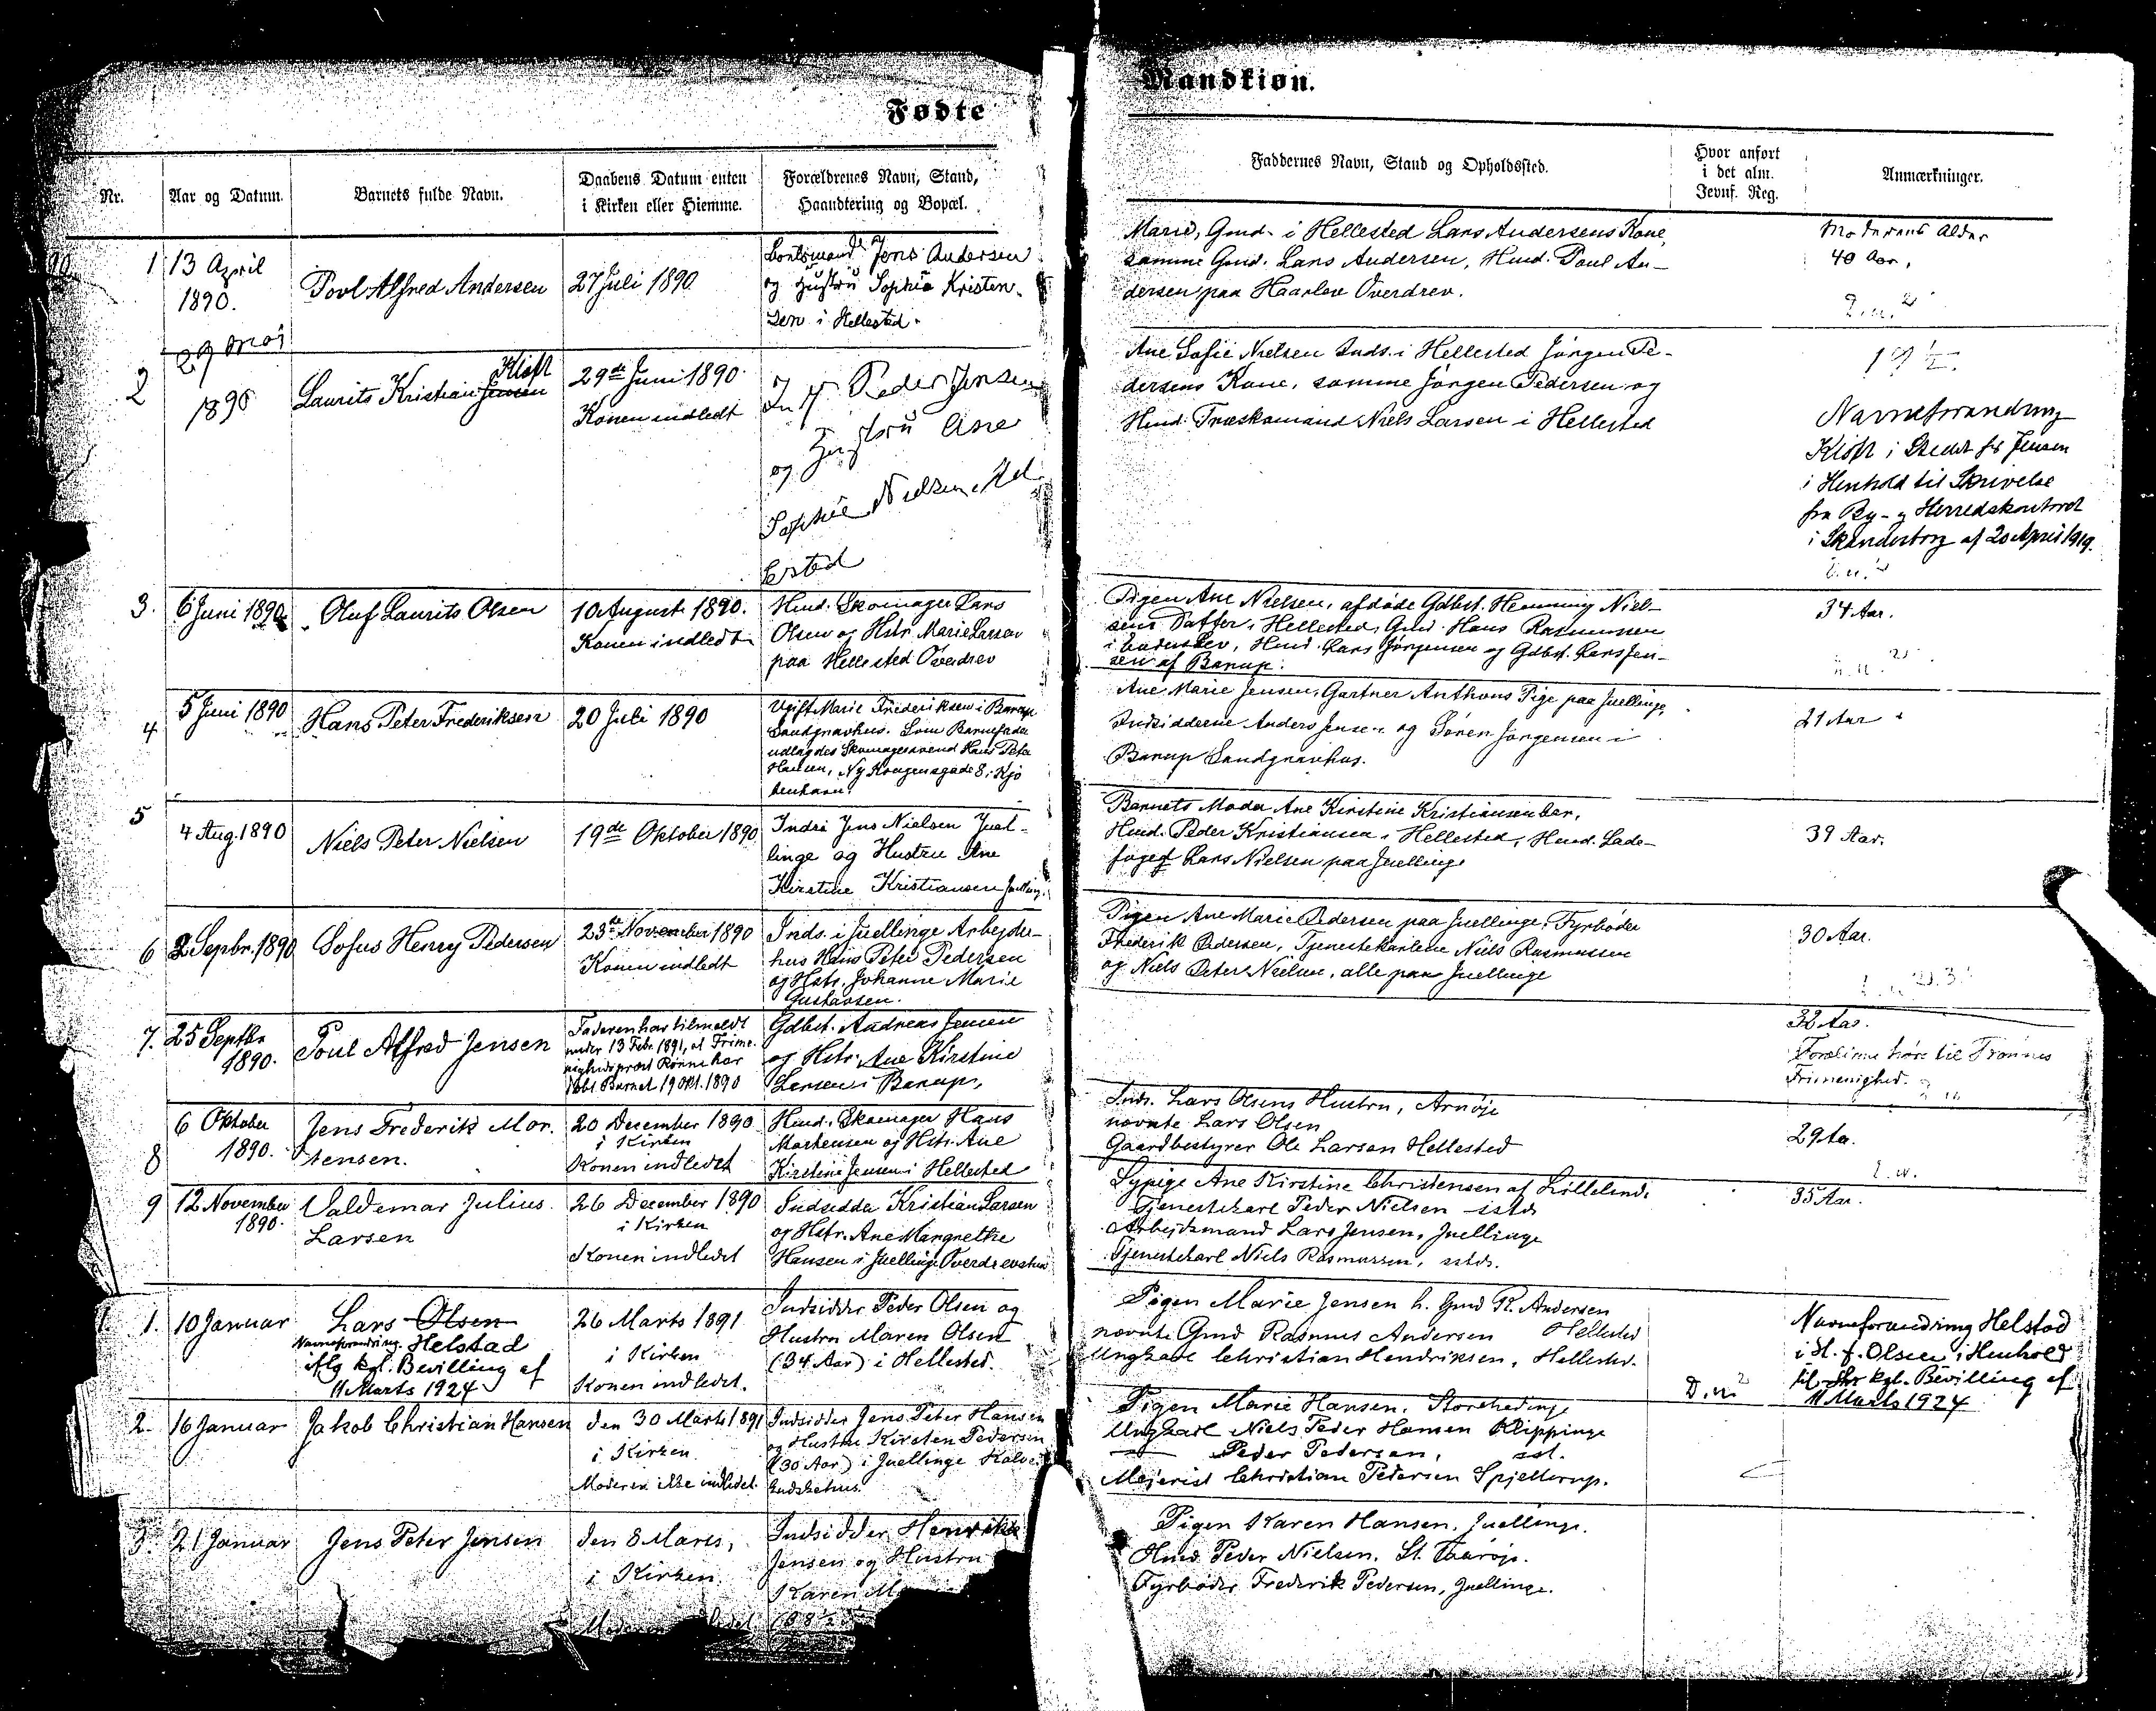 Fødte
Mandkiøn.
Nr.
Aar og Datum.
Barnets fulde Navn.
Daabens Datum enten
i Kirken eller Hiemme.
Forældrenes Navn, Stand,
Haandtering og Bopæl.
Faddernes Navn, Stand og Opholdssted.
Hvor anført
i det alm.
Jevnf. Reg.
Anmærkninger.
1
13 April
1890.
Povl Alfred Andersen
27 Juli 1890
Jens Andersen
og Hustru Sophie Kristen-
sen i Hellested.
Marie, Gmd. i Hellested Lars Andersens Kone,
samme Gmd. Lars Andersen, Hmd. Poul An-
dersen paa Haarlev Overdrev.
Moderens Alder
40 Aar.
2
29 Mai
1890
Kloft
Laurits Kristian Jensen
29de Juni 1890
Konen indledt
Peder Jensen
og Hustru Ane
Sophie Nielsen, Hel
lested
Ane Sofie Nielsen Inds. i Hellested Jørgen Pe-
dersens Kone, samme Jørgen Pedersen og
Hmd. Træskomand Niels Larsen i Hellested
Navneforandring
Kloft i Stedet for Jensen
i Henhold til Skrivelse
fra By- og Herredskontoret
i Skanderborg af 20 April 1919.
3.
6 Juni 1890
Oluf Laurits Olsen
10 August 1890.
Konen indledt
Hmd. Skomager Lars
Olsen og Hstr. Marie Larsen
paa Hellested Overdrev
Pigen Ane Nielsen, afdøde Gdbst. Hemming Niel-
sens Datter i Hellested, Gmd. Hans Rasmussen
i Hmd. Lars Jørgensen og Gdbst. Lars Jen-
sen af Barup.
34 Aar.
4
5 Juni 1890
Hans Peter Frederiksen
20 Juli 1890
Ugift Marie Frederiksen i Barup
Sandgravhus. Som Barnefader
udlagdes Skomagersvend Hans Peter
Hansen, Ny Kongensgade 8 i Kjø
benhavn.
Ane Marie Jensen, Gartner Anthons Pige paa Juellinge,
Indsidderne Anders Jensen og Søren Jørgensen i
Barup Sandgravhus.
21 Aar
5
4 Aug. 1890
Niels Peter Nielsen
19de Oktober 1890
Inds. Jens Nielsen Juel-
linge og Hustru Ane
Kirstine Kristiansen
Barnets Moder Ane Kirstine Kristiansen bar,
Hmd. Peder Kristiansen i Hellested, Hmd. Lade-
foged Lars Nielsen paa Juellinge
39 Aar.
6
2 Sepbr. 1890
Sofus Henry Pedersen
23de November 1890
Konen indledt
Inds. i Juellinge Arbejder-
hus Hans Peter Pedersen
og Hstr. Johanne Marie
Gustavsen.
Pigen Ane Marie Pedersen paa Juellinge, Fyrbøder
Frederik Pedersen, Tjenestekarlene Niels Rasmussen
og Niels Peter Nielsen, alle paa Juellinge
30 Aar.
7.
25 Septbr
1890.
Poul Alfred Jensen
Faderen har tilmeldt
under 13 Febr. 1891, at Frime-
nighedspræst Rønne har
døbt Barnet 19 Okt. 1890
Gdbst. Andreas Jensen
og Hstr. Ane Kirstine
Larsen i Barup,
32 Aar.
Forældrene høre til
Frimenighed.
8
6 Oktober
1890.
Jens Frederik Mor-
tensen.
20 December 1890
i Kirken
Konen indledet
Hmd. Skomager Hans
Mortensen og Hstr. Ane
Kirstine Jensen i Hellested
Inds. Lars Olsens Hustru, Arnøje
nævnte Lars Olsen
Gaardbestyrer Ole Larsen Hellested
29 Aar.
9
12 November
1890.
Valdemar Julius
Larsen
26 December 1890
i Kirken
Konen indledet
Indsidder Kristian Larsen
og Hstr. Ane Margrethe
Hansen i Juellinge Overdrevshus
Sypige Ane Kirstine Christensen af Lillelund.
Tjenestekarl Peder Nielsen sstds
Arbejdsmand Lars Jensen, Juellinge
Tjenestekarl Niels Rasmussen, sstds.
35 Aar.
1.
10 Januar
Lars Olsen
Navneforandring Helstad
ifølg kgl. Bevilling af
11 Marts 1924
26 Marts 1891
i Kirken
Konen indledet.
Indsidder Peder Olsen og
Hustru Maren Olsen
(34 Aar) i Hellested.
Pigen Marie Jensen h. Gmd R. Andersen
nævnte Gmd Rasmus Andersen Hellested
Ungkarl Christian Hendriksen, Hellested.
Navneforandring Helstad
i St. f. Olsen i Henhold
til kgl. Bevilling af
11 Marts 1924
2.
16 Januar
Jakob Christian Hansen
den 30 Marts 1891
i Kirken
Moderen ikke indledet.
Indsidder Jens Peter Hansen
og Hustru Kirsten Pedersen
(30 Aar) i Juellinge
Pigen Marie Hansen, Storehedinge
Ungkarl Niels Peder Hansen Klippinge
Peder Pedersen, sst.
Mejerist Christian Pedersen Spjellerup.
D. n. 2
3.
21 Januar
Jens Peter Jensen
den 8 Marts,
i Kirken
Indsidder Henrik
Jensen og Hustru
Karen M
Pigen Karen Hansen, Juellinge.
Hmd Peder Nielsen, St. Taarøje.
Fyrbøder Frederik Pedersen, Juellinge.